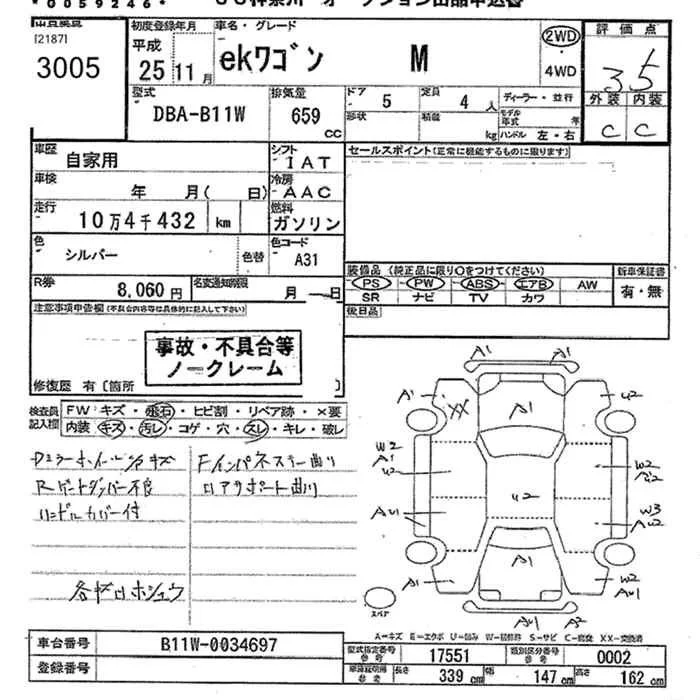 *0059246*
[2187]
3005
初度登録年月
平成
25 11月
車名・グレード
ekワゴン M
2WD
・
4WD
評価点
3.5
外装 内装
C C
型式
DBA-B11W
排気量
659
CC
ドア
5
定員
4 人
ディーラー・並行
形状
積載
kg
モデル年式
年
ハンドル 左・右
車歴
自家用
シフト
IAT
セールスポイント(正常に機能するものに限ります)
車検
年 月( 日)
冷房
AAC
走行
10万4千432 km
燃料
ガソリン
色
シルバー
色替
色コード
A31
R券
8,060円
名変通知期限
月 日
装備品 (純正品に限り○をつけてください)
新車保証書
PS PW ABS エアB AW
SR ナビ TV カワ
有・無
後日品
注意事項申告欄(不具合内容等は具体的に記入して下さい)
事故・不具合等
ノークレーム
修復歴 有〔箇所
検査員記入欄
FW キズ・飛石・ヒビ割・リペア跡・×要
内装 キズ・汚レ・コゲ・穴・スレ・キレ・破レ
ハンドルカバー付
Fインパネステー曲り
A1 A1
A1
XX
A1
U2
W2
A1
U2
U2
W2
AU1
W3
AU2
A1
A1
W2
AU1
AU1 A2
スペア
A-キズ E-エクボ U-凹み W-補修跡 S-サビ C-腐食 XX-交換済
車台番号
B11W-0034697
登録番号
型式指定番号
参考
17551
類別区分番号
参考
0002
参考
長さ
339 cm
幅
147 cm
高さ
162 cm